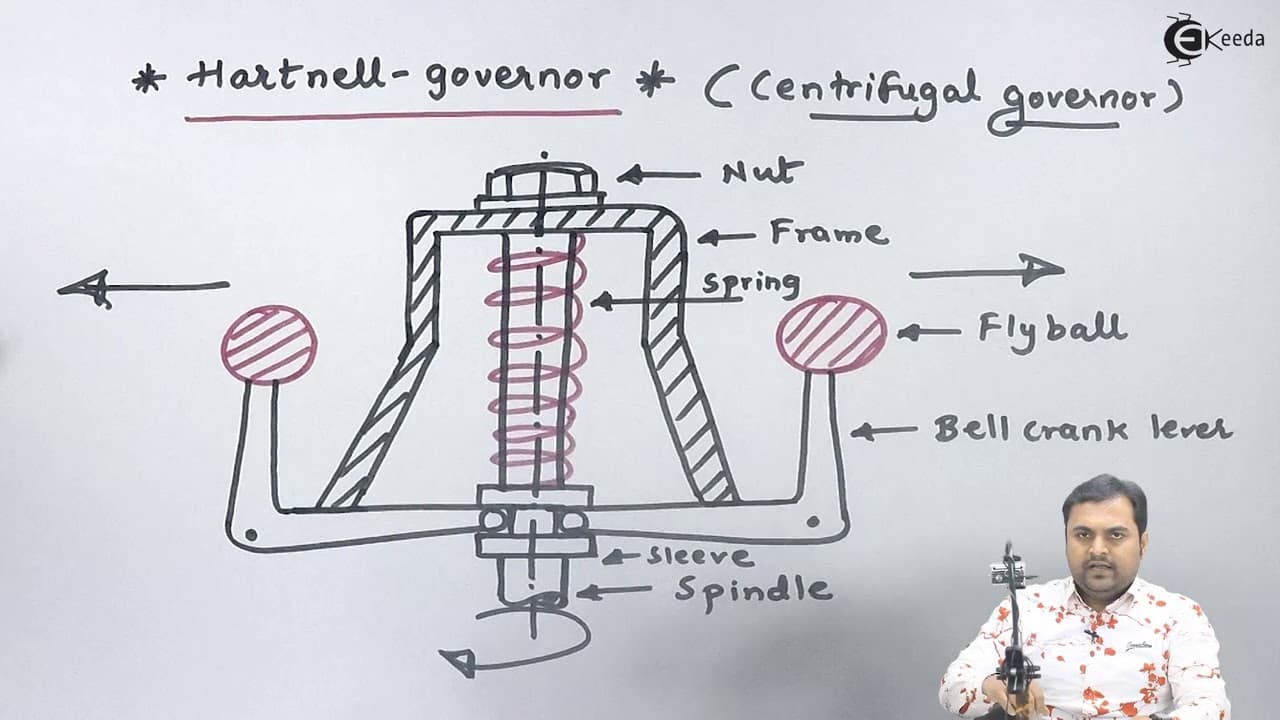 EKeeda
* Hartnell-governor * (Centrifugal governor)
Nut
Frame
Spring
Flyball
Bell crank lever
Sleeve
Spindle